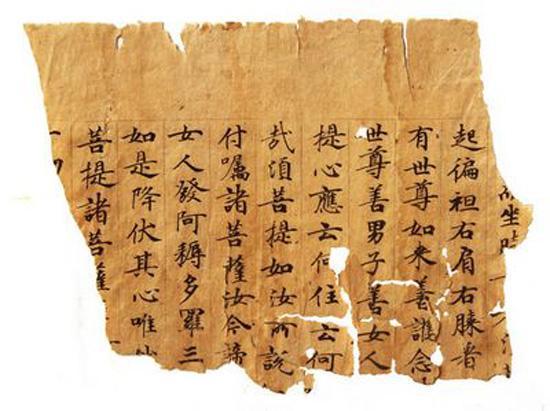 坐時
起徧袒右肩右膝著
有世尊如来善護念
世尊善男子善女人
提心應云何住云何
哉須菩提如汝所說
付囑諸菩薩汝今諦
女人發阿耨多羅三
如是降伏其心唯
菩提諸菩薩